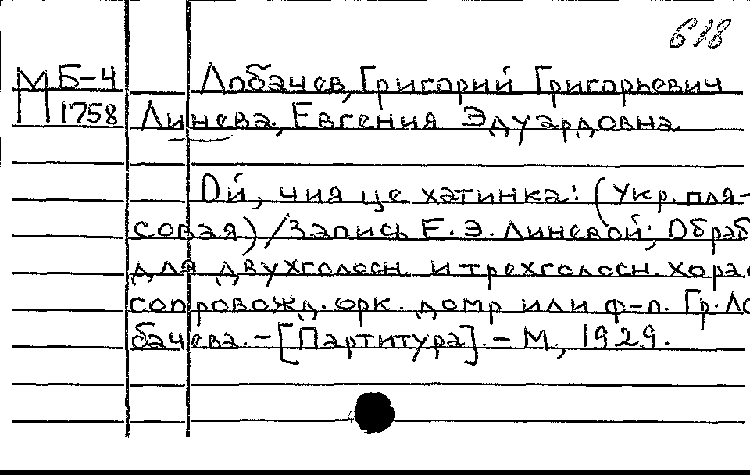 618
М Б-4 Лобачев, Григорий Григорьевич
1758 Линева, Евгения Эдуардовна
Ой, чия це хатинка: (Укр. пля-
совая) / Запись Е. Э. Линевой; Обраб
для двухголосн. и трехголосн. хора
сопровожд. орк. домр или ф-п. Гр. Ло
бачева. - [Партитура] - М, 1929.